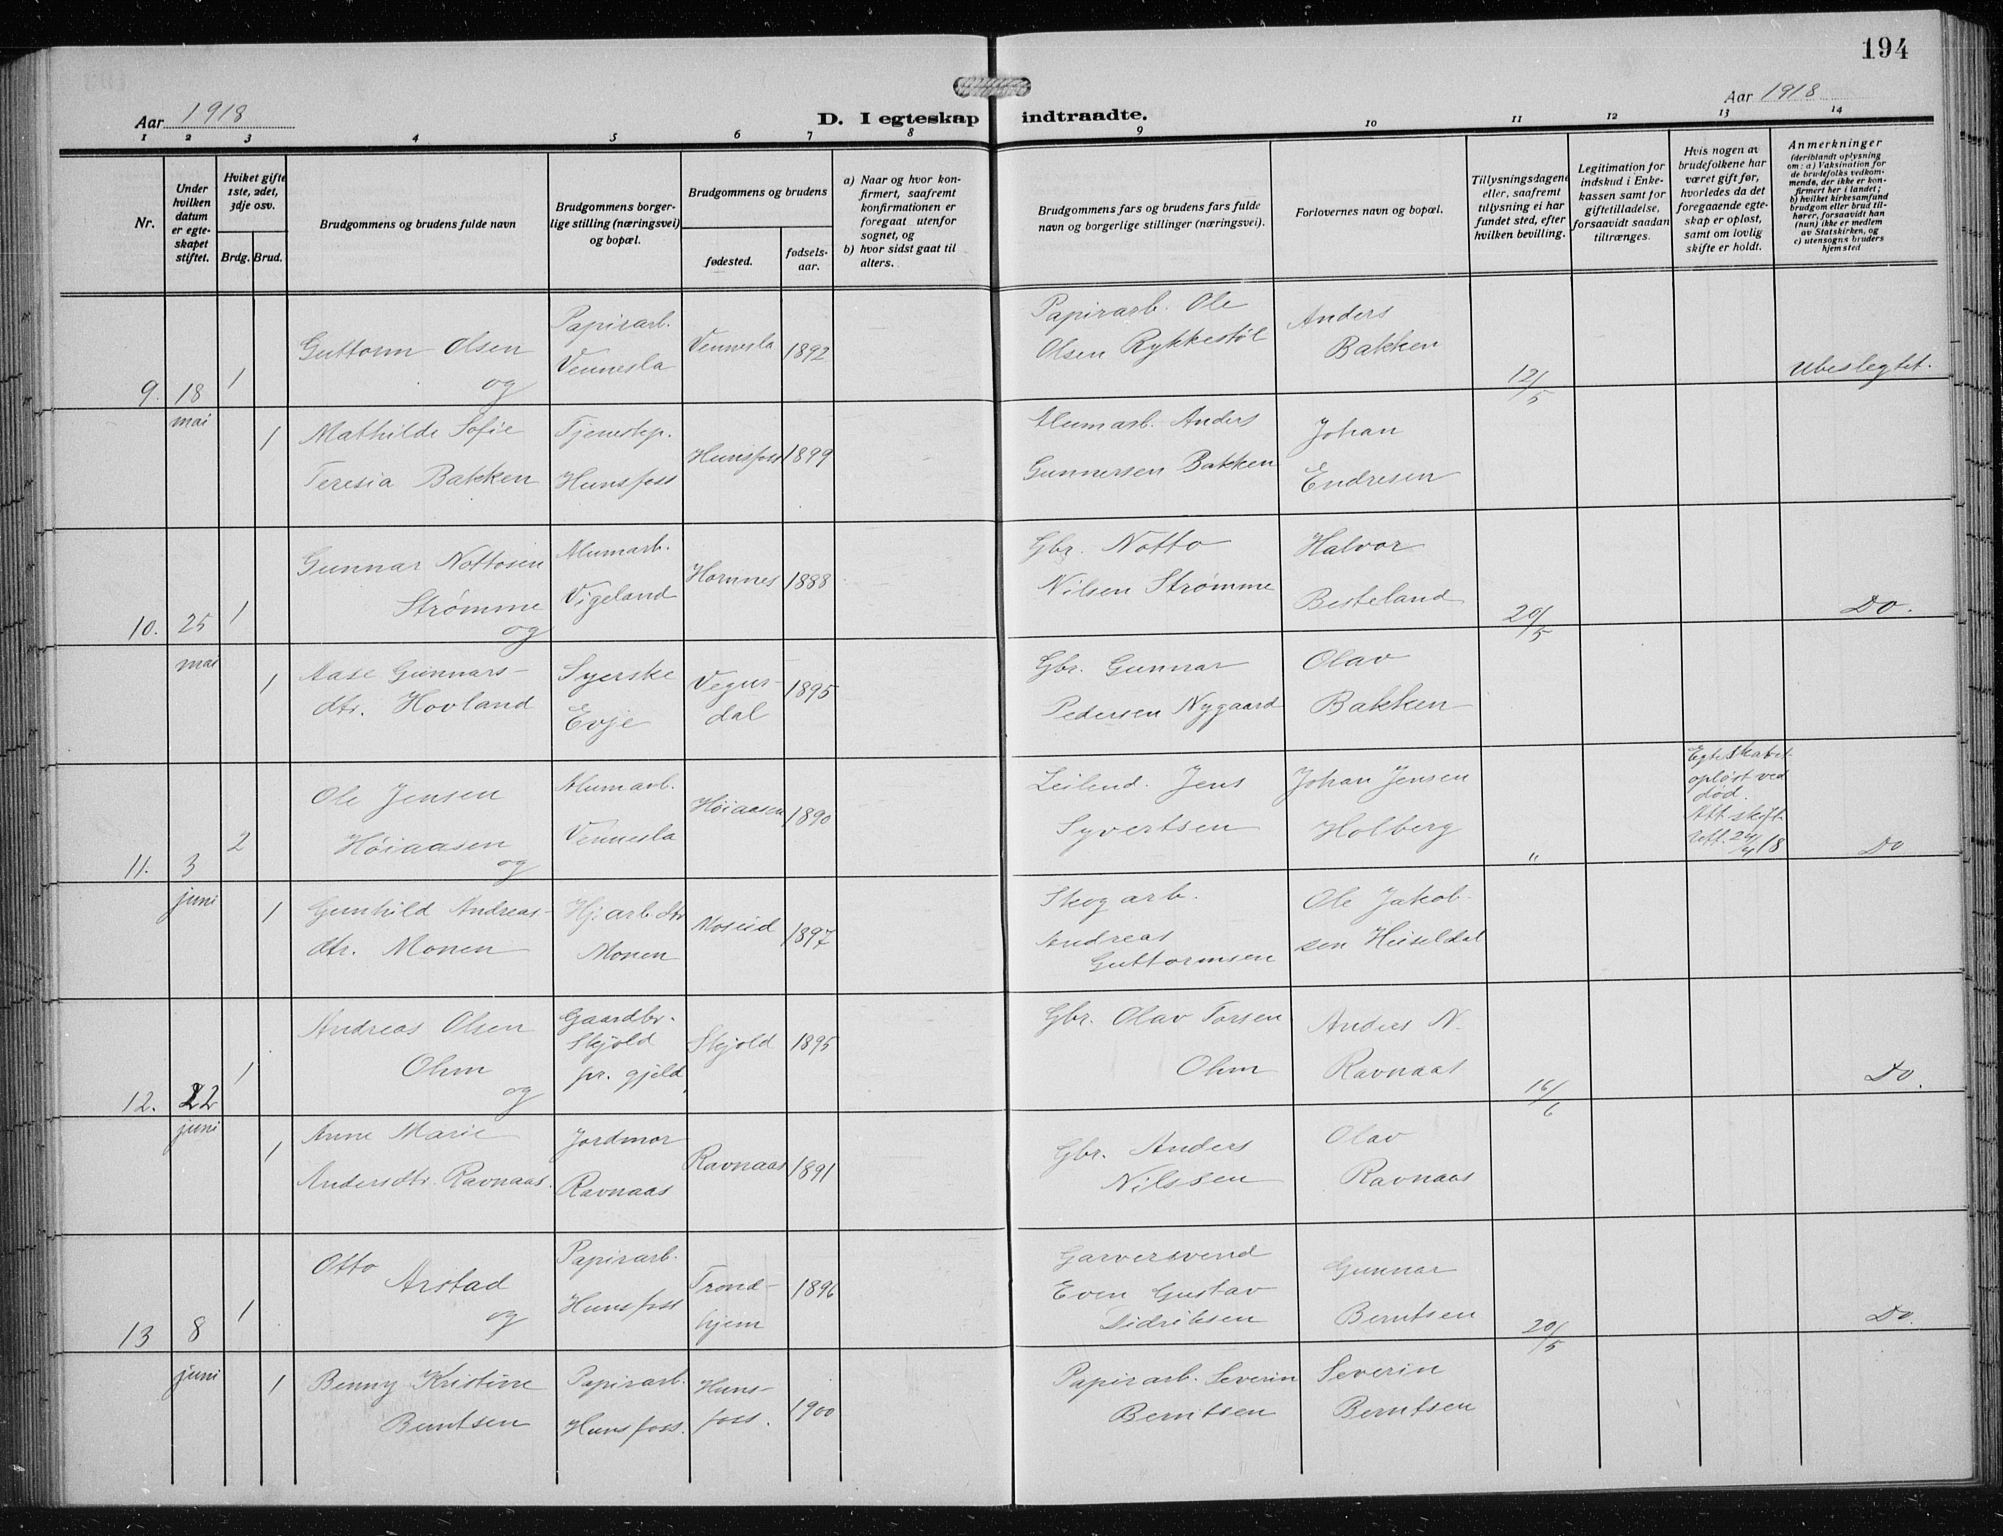 194
Aar 1918
D. I egteskap indtraadte.
Aar 1918
1 2 3 4 5 6 7 8 9 10 11 12 13 14
Nr.
Under hvilken datum er egteskapet stiftet.
Hviket gifte 1ste, 2det, 3dje osv.
Brdg. Brud.
Brudgommens og brudens fulde navn
Brudgommens borgerlige stilling (næringsvei) og bopæl.
Brudgommens og brudens
fødested.
fødselsaar.
a) Naar og hvor konfirmert, saafremt konfirmationen er foregaat utenfor sognet, og
b) hvor sidst gaat til alters.
Brudgommens fars og brudens fars fulde navn og borgerlige stillinger (næringsvei).
Forlovernes navn og bopæl.
Tillysningsdagene eller, saafremt tillysning ei har fundet sted, efter hvilken bevilling.
Legitimation for indskud i Enkekassen samt for giftetilladelse, forsaavidt saadan tiltrænges.
Hvis nogen av brudefolkene har været gift før, hvorledes da det foregaaende egteskap er opløst, samt om lovlig skifte er holdt.
Anmerkninger
(deriblandt oplysning om: a) Vaksination for de brudefolks vedkommende, der ikke er konfirmert her i landet; b) hvilket kirkesamfund brudgom eller brud tilhører, forsaavidt han (hun) ikke er medlem av Statskirken, og c) utensogns bruders hjemsted
9. 18 mai
1
Guttorm Olsen
og
Papirarb.
Vennesla
Vennesla 1892
Papirarb. Ole
Olsen Rykkestøl
Anders
Bakken
12/5
Ubeslegtet.
1
Mathilde Sofie
Teresia Bakken
Tjenestep.
Hunsfoss
Hunsfoss 1899
Alumarb. Anders
Gunnersen Bakken
Johan
Endresen
10. 25 mai
1
Gunnar Nottosen
Strømme
og
Alumarb.
Vigeland
Hornnes 1888
Gbr. Notto
Nilsen Strømme
Halvor
Besteland
20/5
Do.
1
Aase Gunnars-
dtr. Hovland
Syerske
Evje
Vegus-
dal
1895
Gbr. Gunnar
Pedersen Nygaard
Olav
Bakken
11. 3 juni
2
Ole Jensen
Høiaasen
og
Alumarb.
Vennesla
Høiaasen 1890
Leilend. Jens
Syvertsen
Johan Jensen
Holberg
"
Egteskabet
opløst ved
død.
Att. skift.
Utf. 24/4 18
Do
1
Gunhild Andreas-
dtr. Monen
Hj. arb. dtr
Monen
Moseid 1897
Skogarb.
Andreas
Guttormsen
Ole Jakob-
sen Heiseldal
12. 22 juni
1
Andreas Olsen
Ohm
og
Gaardbr.
Skjold
pr. gjeld
Skjold 1895
Gbr. Olav Torsen
Ohm
Anders N.
Ravnaas
16/6
Do.
1
Anne Marie
Andersdtr. Ravnaas.
Jordmor
Ravnaas
Ravnaas 1891
Gbr. Anders
Nilssen
Olav
Ravnaas
13 8 juni
1
Otto
Arstad
og
Papirarb.
Hunsfoss
Trond-
hjem
1896
Garversvend
Even Gustav
Didriksen
Gunnar
Berntsen
20/5
Do.
1
Benny Kristine
Berntsen
Papirarb.
Hunsfoss.
Huns-
foss.
1900
Papirarb. Severin
Berntsen
Severin
Berntsen